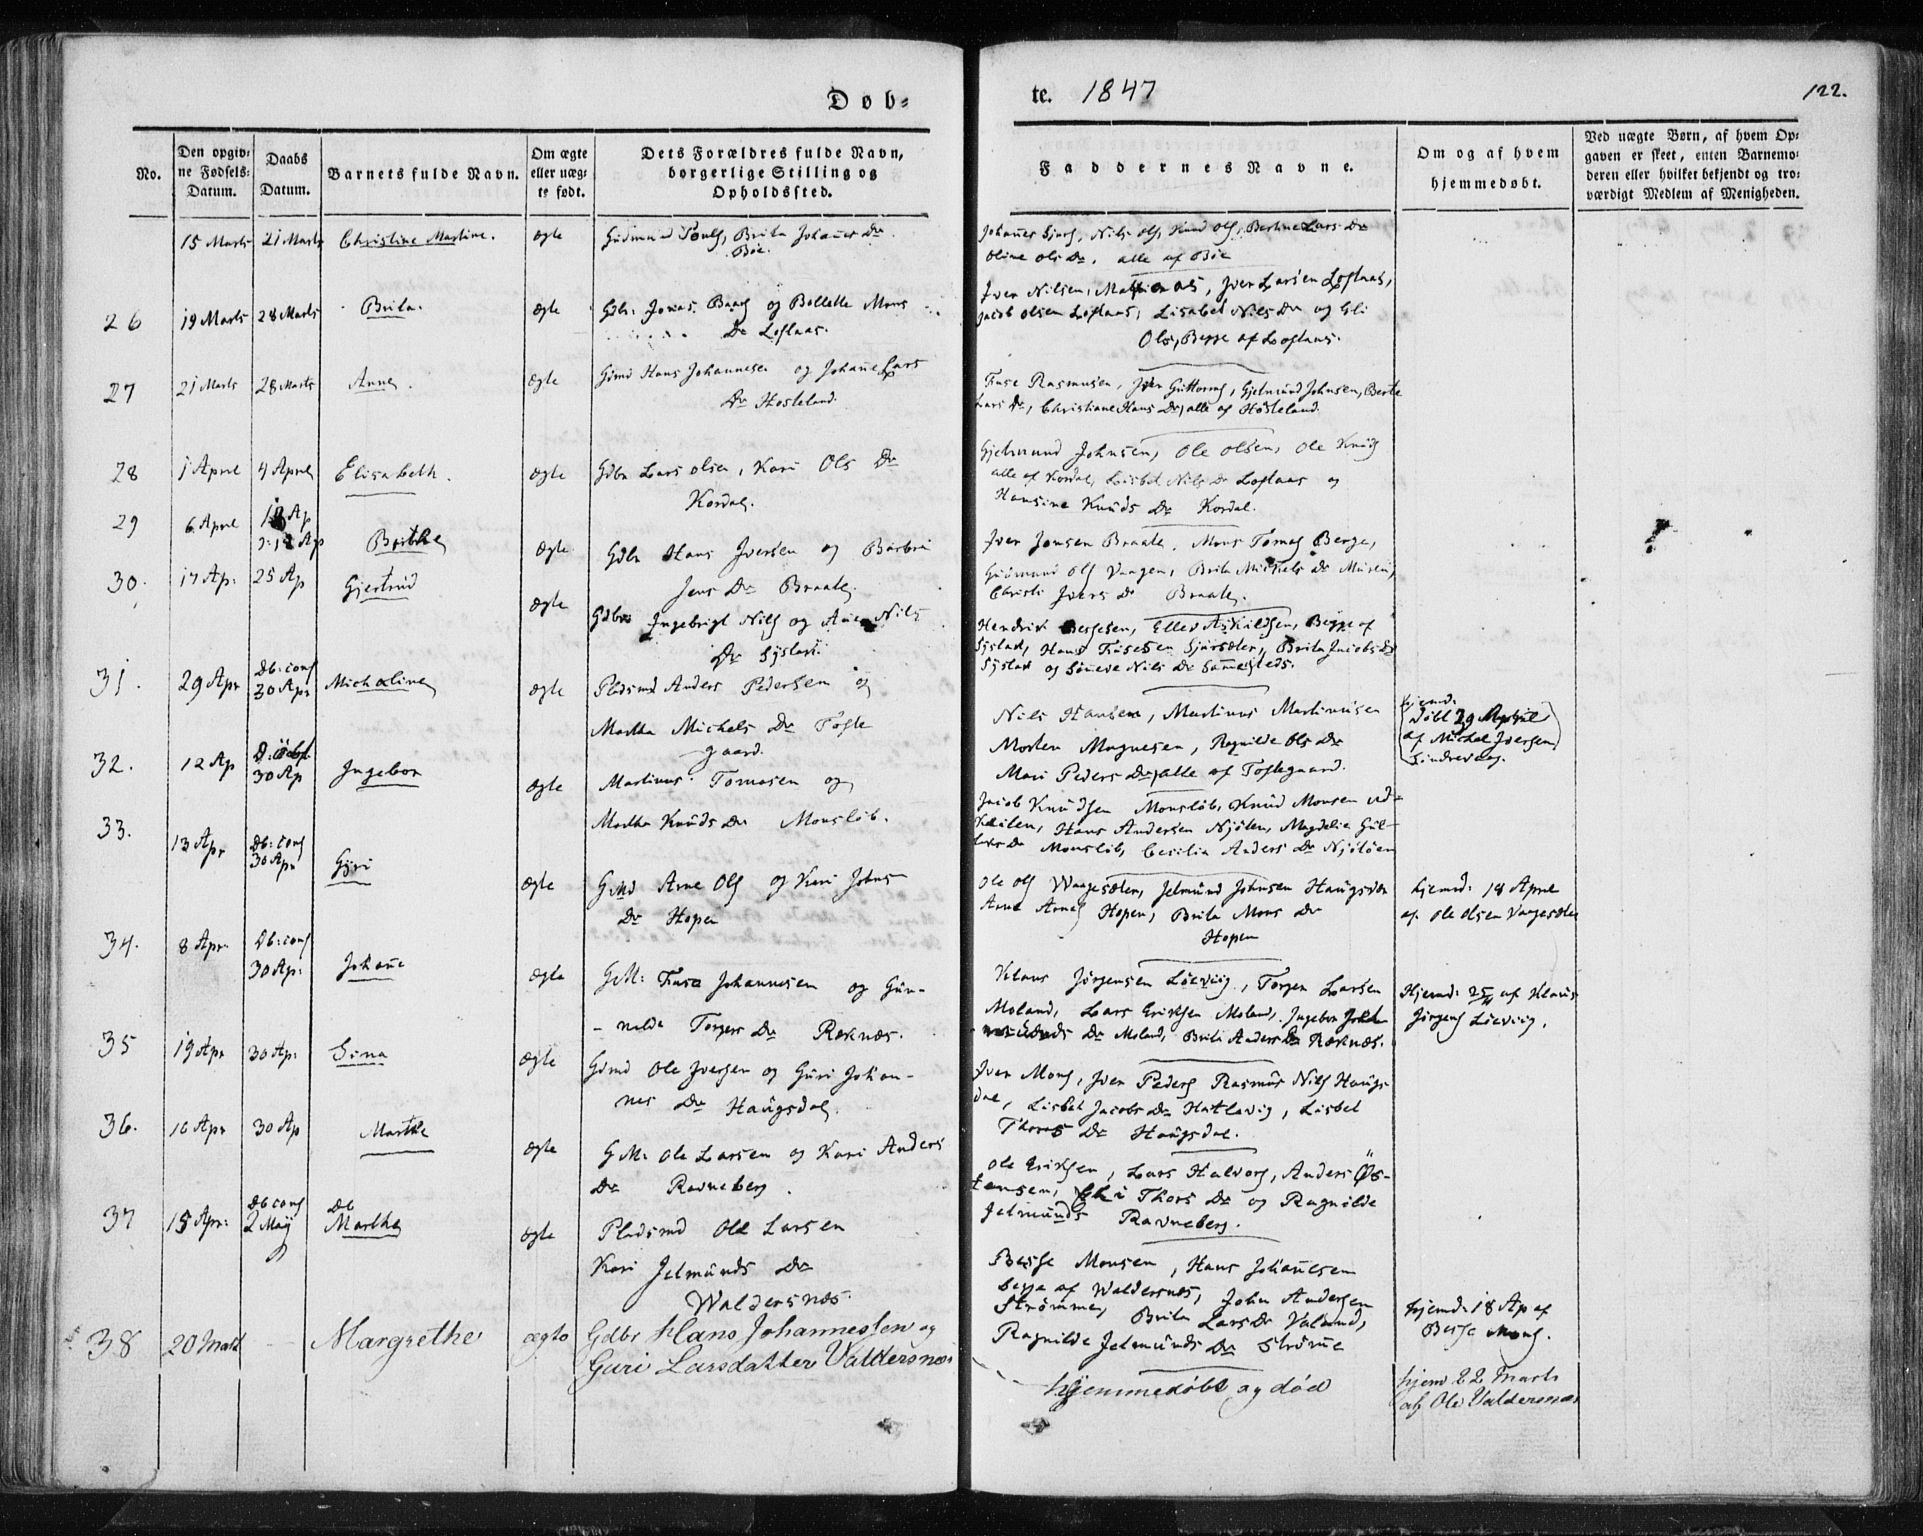 Døb-
te. 1847
122.
No.
Den opgiv-
ne Fødsels-
Datum.
Daabs
Datum.
Barnets fulde Navn.
Om ægte
eller uæg-
te født.
Dets Forældres fulde Navn,
borgerlige Stilling og
Opholdssted.
Faddernes Navne.
Om og af hvem
hjemmedøbt.
Ved uægte Børn, af hvem Op-
gaven er skeet, enten Barnemo-
deren eller hvilket bekjendt og tro-
værdigt Medlem af Menigheden.
15 Marts 21 Marts Christine Martine. ægte Gudmund Brita Johannes Dr
Böe.
Johannes Nils Ols, Knud Ols, Bertine Lars Dr
Oline Ols Dr, alle af Böe
26 19 Marts 28 Marts Brita. ægte Gdbr: Jonas og Bollette Mons
Dr Loftaas.
Iver Nilsen, Iver Larsen Loftaas,
Jacob Olsen Loftaas, Lisabet Nils Dr og Eli
Ols, Begge af Loftaas.
27 21 Marts 28 Marts Anne. ægte Gdmd Hans Johannesen og Johane Lars
Dr Hosteland.
Fuse Rasmusen, Iver Guttorms, Gjelmund Johnsen, Berte
Lars Dr, Christiane Hans Dr, alle af Hosteland.
28 1 April 4 April Elisabeth. ægte Gdbr Lars Olsen, Kari Ols Dr
Kordal.
Gjelmund Johnsen, Ole Olsen, Ole Knuds
alle af Kordal, Lisbet Nils Dr Loftaas og
Hansine Knuds Dr Kordal.
29 6 April Brithe ægte Gdbr Hans Iversen og Barbra
Jens Dr Braate.
Iver Jonsen Braate, Mons Tomas Berge,
Gudmund Ols Vaagen, Brita Mickels Dr
Christi Ivers Dr Braate.
30. 17 Ap: 25 Ap Gjertrud ægte Gdbr Ingebrigt Nils og Ane Nils
Dr Systad.
Hendrik Bergesen, Ellev Askildsen, Begge af
Systad, Hans Fusesen Brita Jacobs Dr
Systad og Sönneve Nils Dr sammesteds.
31. 29 Apr Db: conf
30 Apr Michaline ægte Pladsmd Anders Pedersen og
Martha Michels Dr Tofte
gaard.
Nils Hansen, Martinus Martinusen
Morten Magnesen, Ragnilde Ols Dr
Mari Peders Dr, alle af Toftegaard.
hjemd:
döbt 29 April
af Michel Iversen
Sindrevaag.
32. 12 Ap
30 Ap Ingebor ægte Martinus Tomasen og
Martha Knuds Dr Monslöb.
Jacob Knudsen Monslöb, Knud Monsen
Hans Andersen Njöten, Magdelie
Monslöb, Cecilia Anders Dr Njötöen
33. 13 Apr Db: conf
30 Apr Guri ægte Gmd Arne Ols og Kari Johns
Dr Hopen
Ole Ols Vaagesæter, Jelmund Johnsen Haugsdal
Arne Arnes Hopen, Brita Mons Dr
Hopen
hjemd: 18 April
af Ole Olsen Vaagesæter
34. 8 Apr. Db: conf
30 Ap: Johane ægte G.M: Fusa Johannesen og Gun-
nelde Torgers Dr Reknæs.
Klaus Jörgensen Torger Larsen
Moland, Lars Eriksen Moland, Ingebor
Dr Moland, Brite Anders Dr Reknæs.
Hjemd: 25/4 af Klaus
Jörgens
35 19 Apr 30 Ap: Sina ægte Gdmd Ole Iversen og Guri Johan-
nes Dr Haugsdal.
Iver Mons, Iver Peders Rasmus Nils Haugs-
dal, Lisbet Jacobs Dr Hatlevig, Lisbet
Thomas Dr Haugsdal.
36. 16 Apr 30 Ap Marthe ægte G.M: Ole Larsen og Kari Anders
Dr Ravneberg.
Ole Eriksen, Lars Halvors, Anders Øs-
tensen, Eli Thors Dr og Ragnilde
Jelmunds Ravneberg.
37 15 Apr: Db conf
2 May Marthe ægte Pladsmd Ole Larsen
Kari Jelmunds Dr
Waldersnæs.
Besse Monsen, Hans Johannesen
begge af Waldersnæs, John Andersen
Strömme, Brita Lars Dr
Ragnilde Jelmunds Dr Strömme
hjemd: 18 Ap af
Besse Mons.
38 20 Mart Margrethe ægte Gdbr Hans Johannessen og
Guri Larsdatter Valdersnæs
hjemmedöbt og död
hjemd 22 Marts
af Ole Valdersnæs